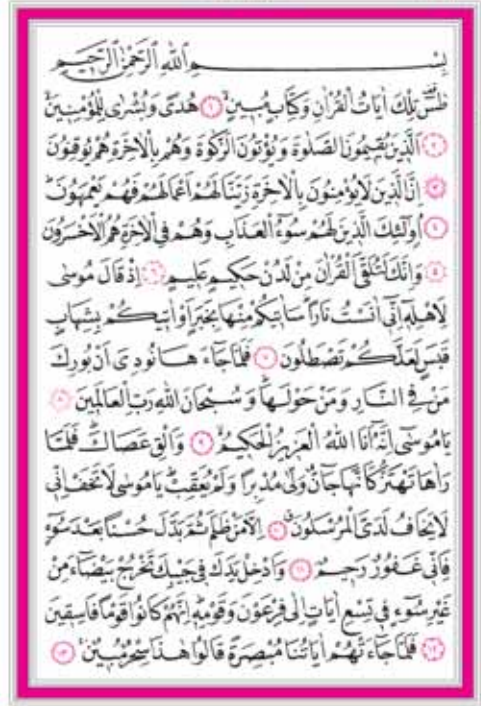 بِسْمِ اللّٰهِ الرَّحْمٰنِ الرَّحِيمِ
طٰسٓ تِلْكَ اٰيَاتُ الْقُرْاٰنِ وَكِتَابٍ مُبِينٍ ﴿١﴾ هُدًى وَبُشْرٰى لِلْمُؤْمِنِينَ
﴿٢﴾ اَلَّذِينَ يُقِيمُونَ الصَّلٰوةَ وَيُؤْتُونَ الزَّكٰوةَ وَهُمْ بِالْاٰخِرَةِ هُمْ يُوقِنُونَ
﴿٣﴾ اِنَّ الَّذِينَ لَا يُؤْمِنُونَ بِالْاٰخِرَةِ زَيَّنَّا لَهُمْ اَعْمَالَهُمْ فَهُمْ يَعْمَهُونَ
﴿٤﴾ اُو۬لٰٓئِكَ الَّذِينَ لَهُمْ سُوٓءُ الْعَذَابِ وَهُمْ فِي الْاٰخِرَةِ هُمُ الْاَخْسَرُونَ
﴿٥﴾ وَاِنَّكَ لَتُلَقَّى الْقُرْاٰنَ مِنْ لَدُنْ حَكِيمٍ عَلِيمٍ ﴿٦﴾ اِذْ قَالَ مُوسٰى
لِاَهْلِهِ اِنِّي اٰنَسْتُ نَارًا سَاٰتِيكُمْ مِنْهَا بِخَبَرٍ اَوْ اٰتِيكُمْ بِشِهَابٍ
قَبَسٍ لَعَلَّكُمْ تَصْطَلُونَ ﴿٧﴾ فَلَمَّا جَٓاءَهَا نُودِيَ اَنْ بُورِكَ
مَنْ فِي النَّارِ وَمَنْ حَوْلَهَا وَسُبْحَانَ اللّٰهِ رَبِّ الْعَالَمِينَ ﴿٨﴾
يَامُوسٰٓى اِنَّهُٓ اَنَا اللّٰهُ الْعَزِيزُ الْحَكِيمُ ﴿٩﴾ وَاَلْقِ عَصَاكَ فَلَمَّا
رَاٰهَا تَهْتَزُّ كَاَنَّهَا جَٓانٌّ وَلّٰى مُدْبِرًا وَلَمْ يُعَقِّبْ يَامُوسٰى لَا تَخَفْ اِنِّي
لَا يَخَافُ لَدَيَّ الْمُرْسَلُونَ ﴿١٠﴾ اِلَّا مَنْ ظَلَمَ ثُمَّ بَدَّلَ حُسْنًا بَعْدَ سُٓوءٍ
فَاِنِّي غَفُورٌ رَحِيمٌ ﴿١١﴾ وَاَدْخِلْ يَدَكَ فِي جَيْبِكَ تَخْرُجْ بَيْضَٓاءَ مِنْ
غَيْرِ سُٓوءٍ فِي تِسْعِ اٰيَاتٍ اِلٰى فِرْعَوْنَ وَقَوْمِهِ اِنَّهُمْ كَانُوا قَوْمًا فَاسِقِينَ
﴿١٢﴾ فَلَمَّا جَٓاءَتْهُمْ اٰيَاتُنَا مُبْصِرَةً قَالُوا هٰذَا سِحْرٌ مُبِينٌ ﴿١٣﴾